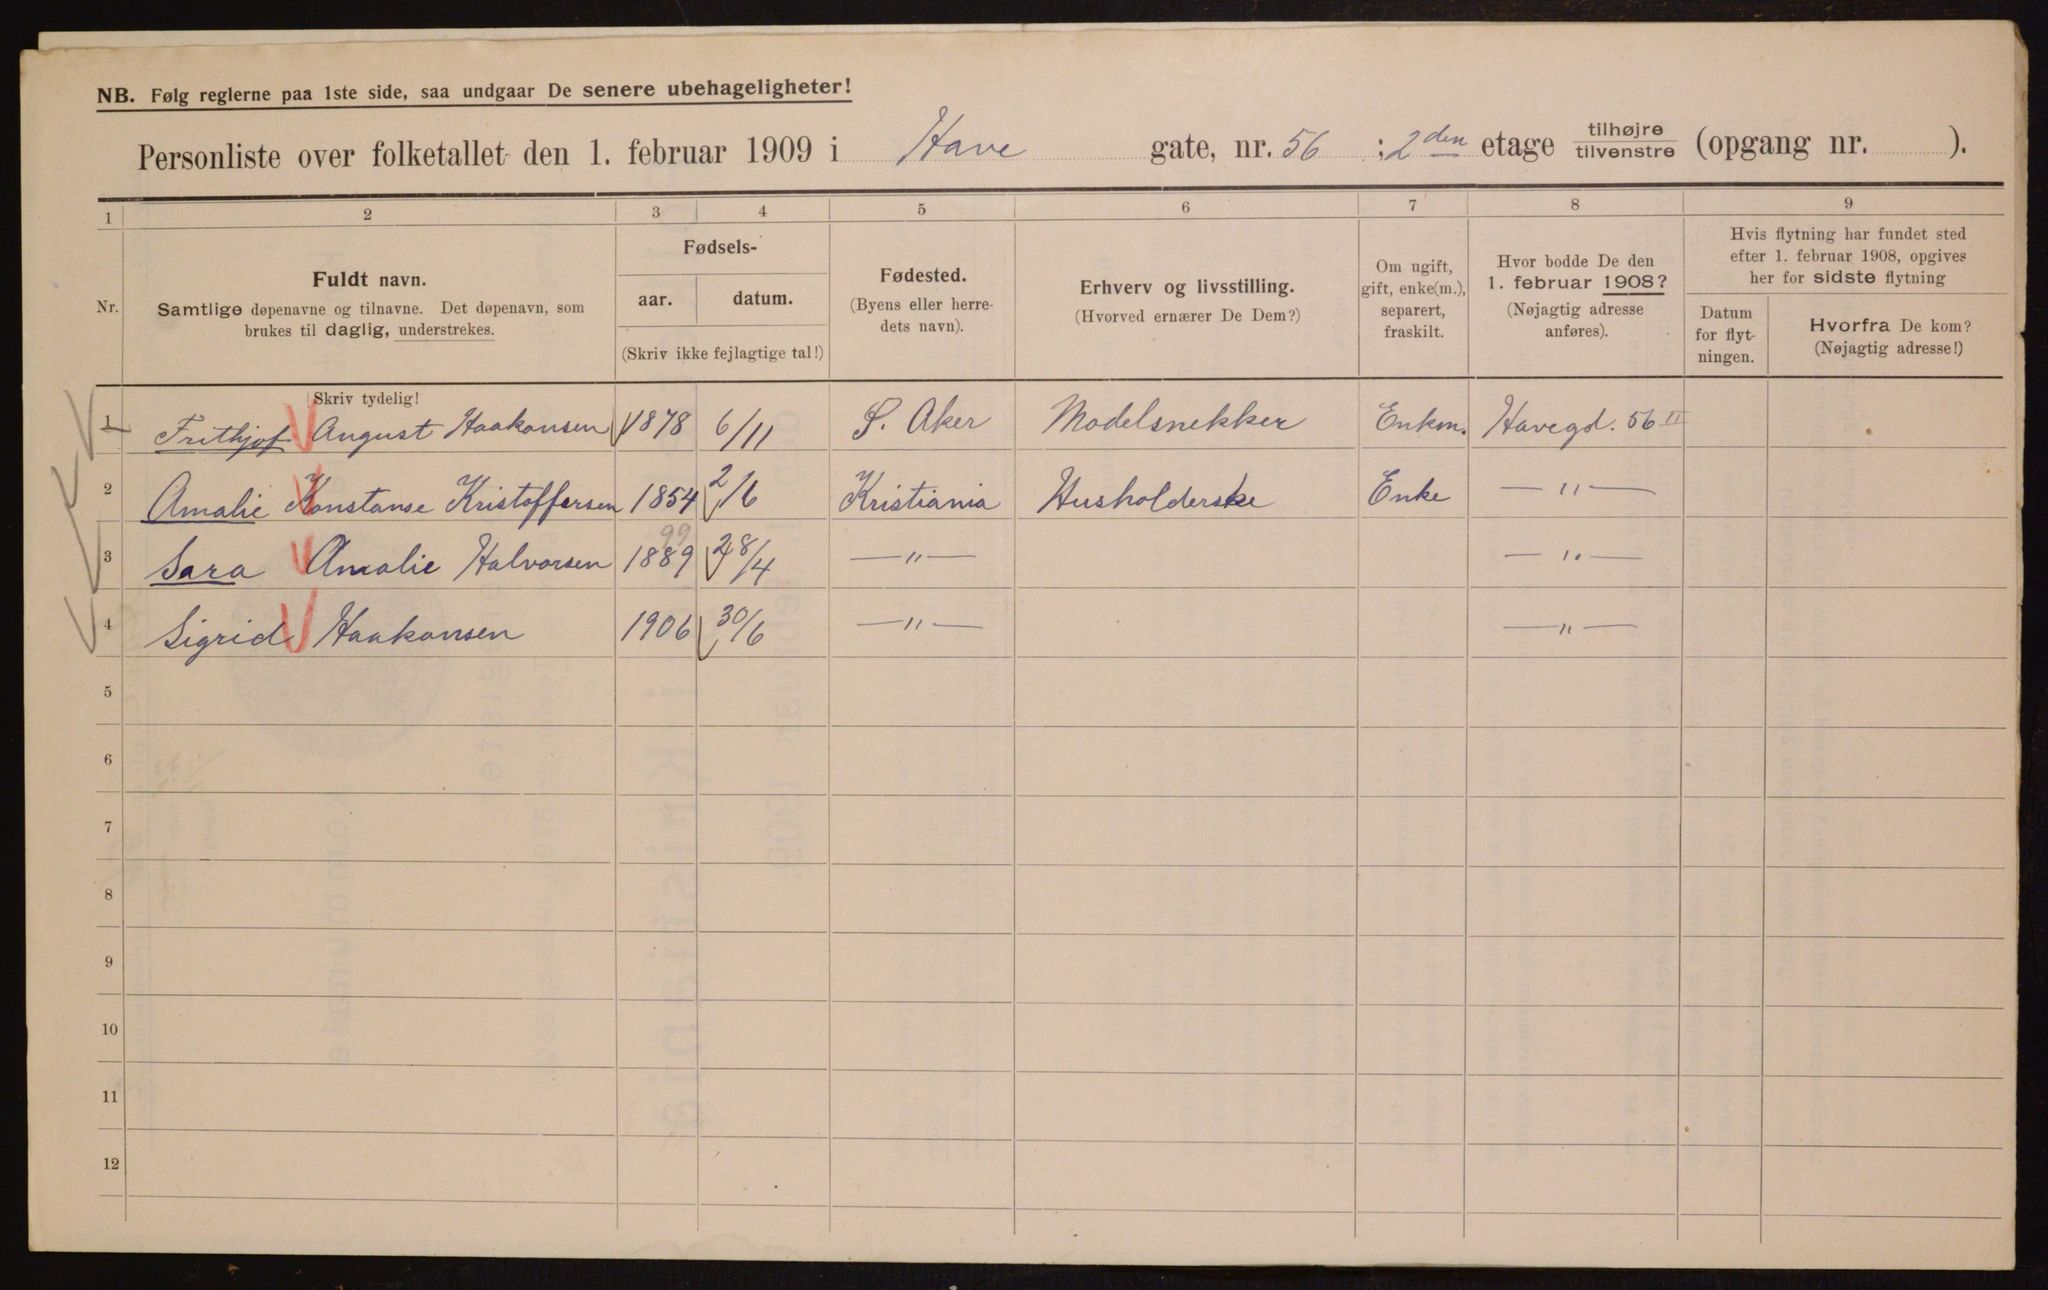 NB. Følg reglerne paa 1ste side, saa undgaar De senere ubehageligheter!
Personliste over folketallet den 1. februar 1909 i Have gate, nr. 56 : 2den etage tilhøjre tilvenstre (opgang nr. ).
1 2 3 4 5 6 7 8 9
Nr.
Fuldt navn.
Samtlige døpenavne og tilnavne. Det døpenavn, som
brukes til daglig, understrekes.
Fødsels-
aar. datum.
(Skriv ikke fejlagtige tal!)
Fødested.
(Byens eller herre-
dets navn).
Erhverv og livsstilling.
(Hvorved ernærer De Dem?)
Om ugift,
gift, enke(m.),
separert,
fraskilt.
Hvor bodde De den
1. februar 1908?
(Nøjagtig adresse
anføres).
Hvis flytning har fundet sted
efter 1. februar 1908, opgives
her for sidste flytning
Datum
for flyt-
ningen.
Hvorfra De kom?
(Nøjagtig adresse!)
Skriv tydelig!
1 Frithjof August Haakonsen 1878 6/11 S. Aker Modelsnekker Enkm. Havegd. 56 II
2 Amalie Konstanse Kristoffersen 1854 2/6 Kristiania Husholderske Enke — " —
99
3 Sara Amalie Halvorsen 1889 28/4 — " — — " —
4 Sigrid Haakonsen 1906 30/6 — " — — " —
5
6
7
8
9
10
11
12